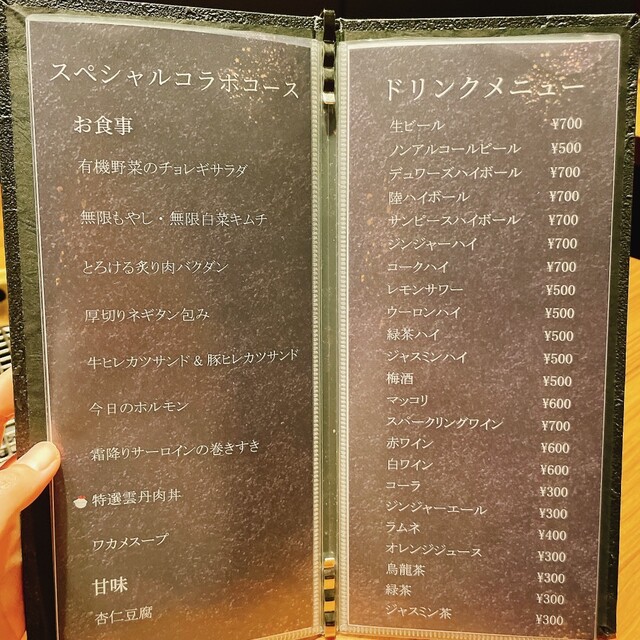 スペシャルコラボコース
お食事
有機野菜のチョレギサラダ
無限もやし・無限白菜キムチ
とろける炙り肉バクダン
厚切りネギタン包み
牛ヒレカツサンド & 豚ヒレカツサンド
今日のホルモン
霜降りサーロインの巻きすき
特選雲丹肉丼
ワカメスープ
甘味
杏仁豆腐
ドリンクメニュー
生ビール ¥700
ノンアルコールビール ¥500
デュワーズハイボール ¥700
陸ハイボール ¥700
サンピースハイボール ¥700
ジンジャーハイ ¥700
コークハイ ¥700
レモンサワー ¥500
ウーロンハイ ¥500
緑茶ハイ ¥500
ジャスミンハイ ¥500
梅酒 ¥500
マッコリ ¥600
スパークリングワイン ¥700
赤ワイン ¥600
白ワイン ¥600
コーラ ¥300
ジンジャーエール ¥300
ラムネ ¥400
オレンジジュース ¥300
烏龍茶 ¥300
緑茶 ¥300
ジャスミン茶 ¥300